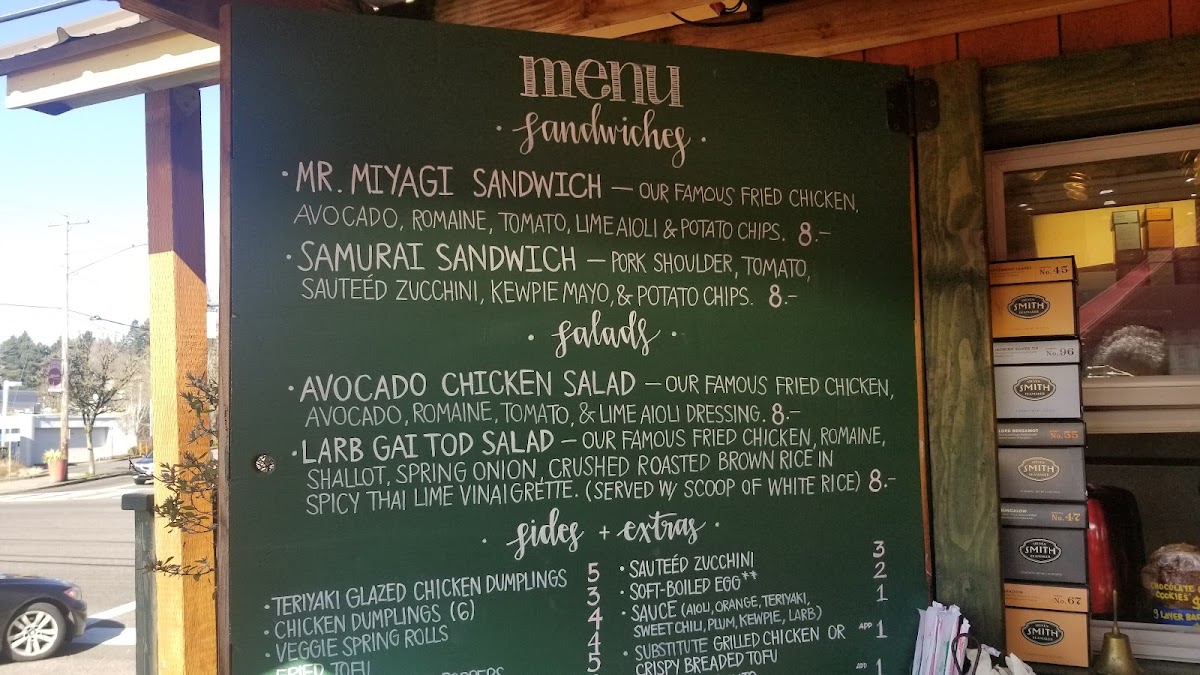 menu
· sandwiches ·
· MR. MIYAGI SANDWICH — OUR FAMOUS FRIED CHICKEN,
AVOCADO, ROMAINE, TOMATO, LIME AIOLI & POTATO CHIPS. 8.-
· SAMURAI SANDWICH — PORK SHOULDER, TOMATO,
SAUTEÉD ZUCCHINI, KEWPIE MAYO, & POTATO CHIPS. 8.-
· salads ·
· AVOCADO CHICKEN SALAD — OUR FAMOUS FRIED CHICKEN,
AVOCADO, ROMAINE, TOMATO, & LIME AIOLI DRESSING. 8.-
· LARB GAI TOD SALAD — OUR FAMOUS FRIED CHICKEN, ROMAINE,
SHALLOT, SPRING ONION, CRUSHED ROASTED BROWN RICE IN
SPICY THAI LIME VINAIGRETTE. (SERVED W/ SCOOP OF WHITE RICE) 8.-
· sides + extras ·
· TERIYAKI GLAZED CHICKEN DUMPLINGS 5
· CHICKEN DUMPLINGS (6) 3
· VEGGIE SPRING ROLLS 4
FRIED TOFU 4
POPPERS 5
· SAUTEÉD ZUCCHINI 3
· SOFT-BOILED EGG** 2
· SAUCE (AIOLI, ORANGE, TERIYAKI, 1
SWEET CHILI, PLUM, KEWPIE, LARB)
· SUBSTITUTE GRILLED CHICKEN OR ADD 1
CRISPY BREADED TOFU
ADD 1
No. 45
SMITH
No. 96
SMITH
LORD BERGAMOT
No. 55
SMITH
BUNGALOW
No. 47
SMITH
No. 67
SMITH
CHOCOLATE
COOKIES
LAYER BAR